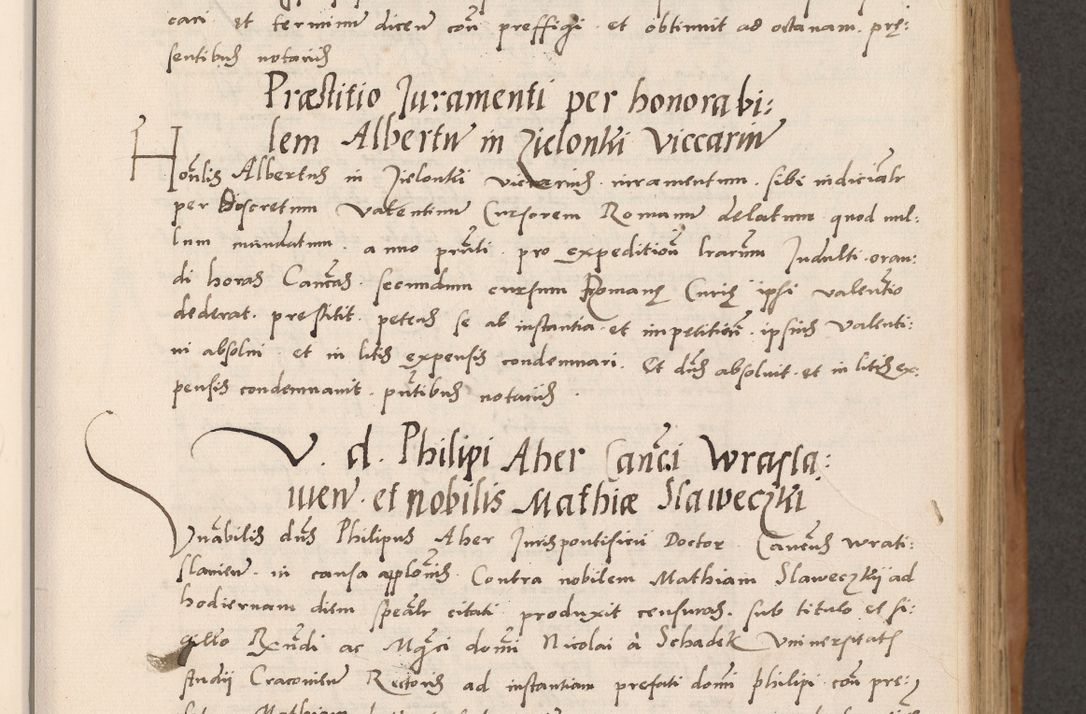 cari et terminum dicen con preffigi et obtinuit ad octavam pre:
sentibus notariis
Præstitio Juramenti per honorabi:
lem Albertu in Zielonki Viccariu
Honlis Albertus in Zielonki vicarius iuramentum sibi indicialr
per Discretum Valentinum Cursorem Romanu delatum quod nul:
lum mandatum anno prnti pro expedition lrarum Indulti oran:
di horas Canocas secundum cursum Romanę Curię ipsi Valentio
dederat prestitit petens se ab instantia et impetition ipsius Valenti:
ni absolui et in litis expensis condemnari Et dns absoluit et in litis ex:
pensis condemnauit pntibus notariis
V. d. Philipi Aher Canci Wrasla:
uien et nobilis Mathiæ Slaweczki
Vnabilis dns Philipus Aher Jurispontificii Doctor Cancus Wrati:
slauien in causa applonis Contra nobilem Mathiam Slaweczkij ad
hodiernam diem spealr citati produxit censuras sub titulo et si:
gillo Rndi ac Mgci domi Nicolai à Schadek Vniuersitatis
studij Cracouien Rectoris ad instantiam prefati domi philipi con pre: